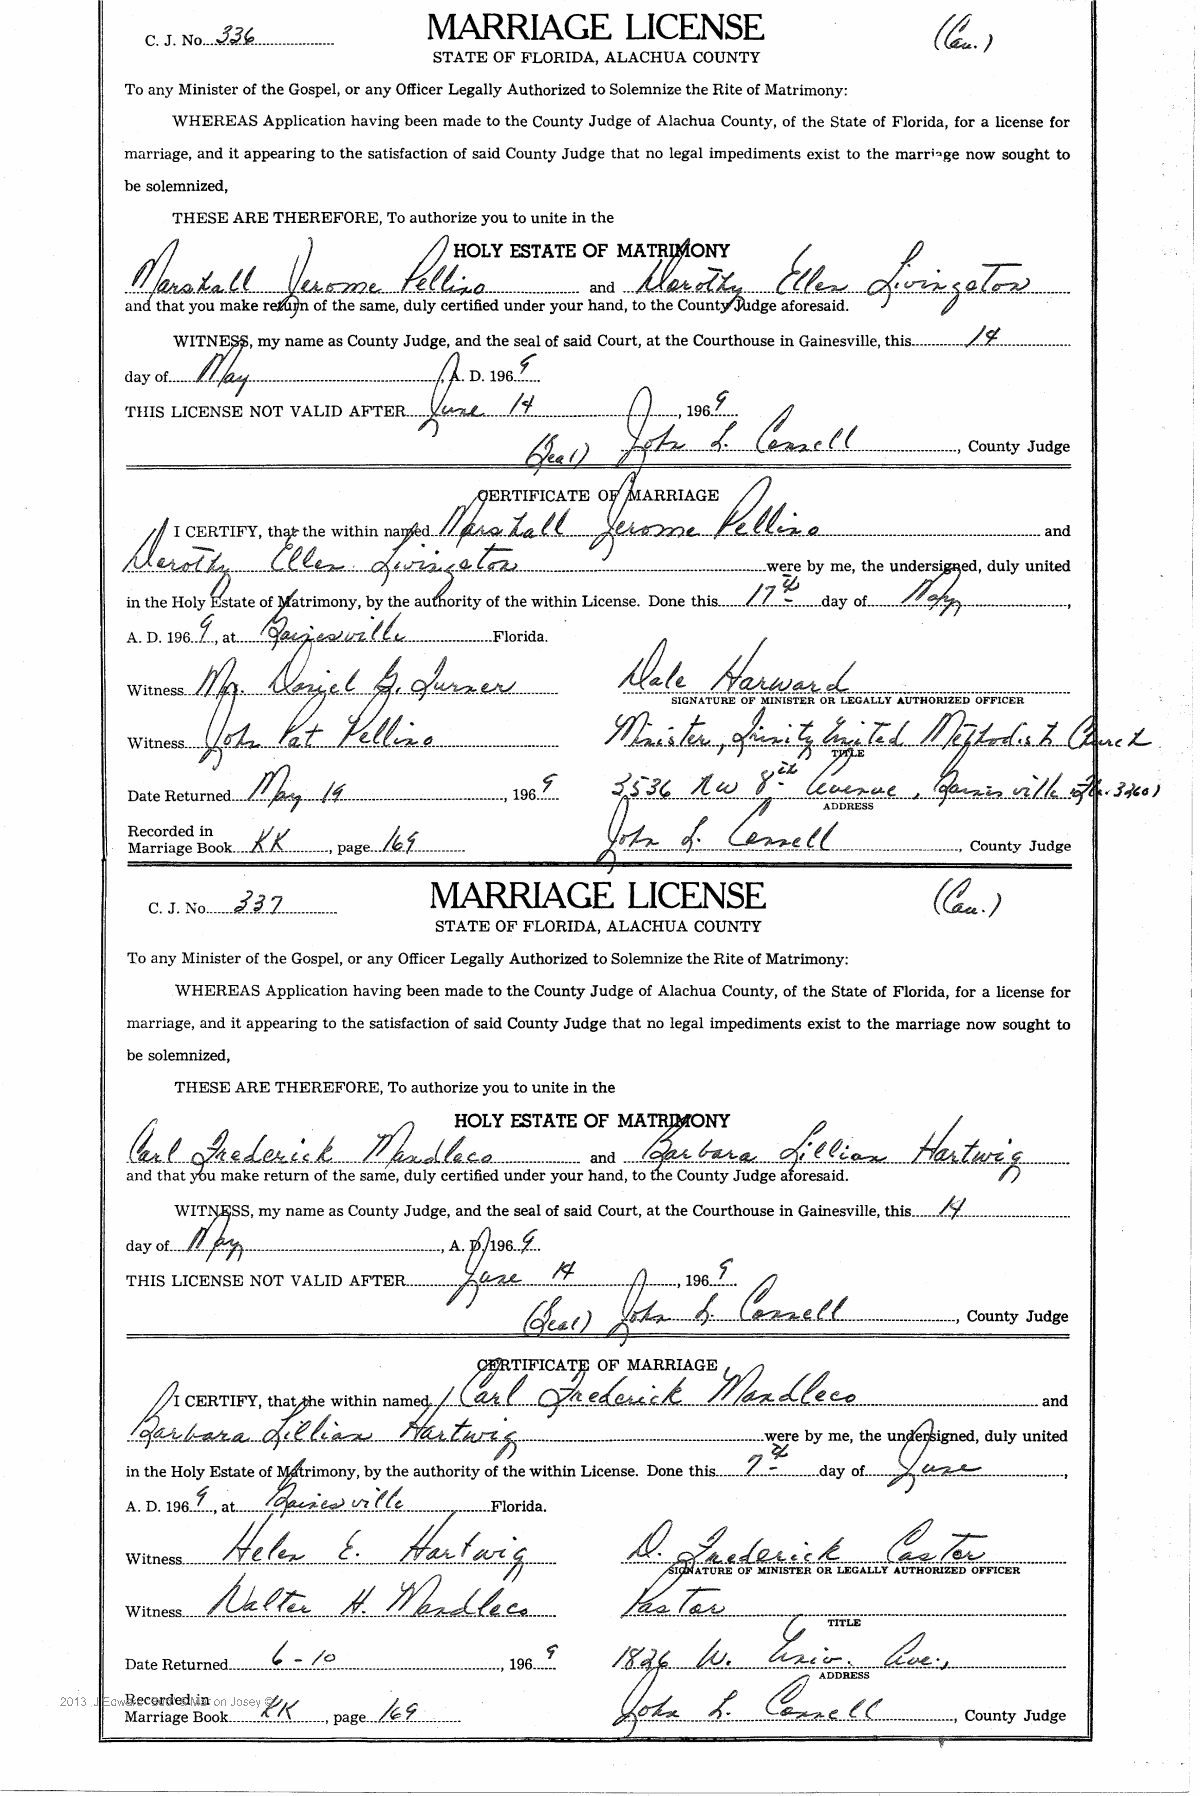 C. J. No. 336 MARRIAGE LICENSE (Cau.)
STATE OF FLORIDA, ALACHUA COUNTY
To any Minister of the Gospel, or any Officer Legally Authorized to Solemnize the Rite of Matrimony:
WHEREAS Application having been made to the County Judge of Alachua County, of the State of Florida, for a license for
marriage, and it appearing to the satisfaction of said County Judge that no legal impediments exist to the marriage now sought to
be solemnized,
THESE ARE THEREFORE, To authorize you to unite in the
HOLY ESTATE OF MATRIMONY
Marshall Jerome Pellino and Dorothy Ellen Livingston
and that you make return of the same, duly certified under your hand, to the County Judge aforesaid.
WITNESS, my name as County Judge, and the seal of said Court, at the Courthouse in Gainesville, this 14
day of May, A. D. 1969
THIS LICENSE NOT VALID AFTER June 14, 1969
(Seal) John L. Connell, County Judge
CERTIFICATE OF MARRIAGE
I CERTIFY, that the within named Marshall Jerome Pellino and
Dorothy Ellen Livingston were by me, the undersigned, duly united
in the Holy Estate of Matrimony, by the authority of the within License. Done this 17th day of May,
A. D. 1969, at Gainesville Florida.
Witness Mr. Daniel G. Turner Dale Harward
SIGNATURE OF MINISTER OR LEGALLY AUTHORIZED OFFICER
Witness John Pat Pellino Minister, Trinity United Methodist Church
TITLE
Date Returned May 19, 1969 3536 NW 8th Avenue, Gainesville Fla. 32601
ADDRESS
Recorded in
Marriage Book KK, page 169 John L. Connell, County Judge
C. J. No. 337 MARRIAGE LICENSE (Cau.)
STATE OF FLORIDA, ALACHUA COUNTY
To any Minister of the Gospel, or any Officer Legally Authorized to Solemnize the Rite of Matrimony:
WHEREAS Application having been made to the County Judge of Alachua County, of the State of Florida, for a license for
marriage, and it appearing to the satisfaction of said County Judge that no legal impediments exist to the marriage now sought to
be solemnized,
THESE ARE THEREFORE, To authorize you to unite in the
HOLY ESTATE OF MATRIMONY
Carl Frederick Mandleco and Barbara Lillian Hartwig
and that you make return of the same, duly certified under your hand, to the County Judge aforesaid.
WITNESS, my name as County Judge, and the seal of said Court, at the Courthouse in Gainesville, this 14
day of May, A. D. 1969
THIS LICENSE NOT VALID AFTER June 14, 1969
(Seal) John L. Connell, County Judge
CERTIFICATE OF MARRIAGE
I CERTIFY, that the within named Carl Frederick Mandleco and
Barbara Lillian Hartwig were by me, the undersigned, duly united
in the Holy Estate of Matrimony, by the authority of the within License. Done this 7th day of June,
A. D. 1969, at Gainesville Florida.
Witness Helen E. Hartwig D. Frederick Castor
SIGNATURE OF MINISTER OR LEGALLY AUTHORIZED OFFICER
Witness Walter H. Mandleco Pastor
TITLE
Date Returned 6-10, 1969 1826 W. Univ. Ave.,
ADDRESS
Recorded in
Marriage Book KK, page 169 John L. Connell, County Judge